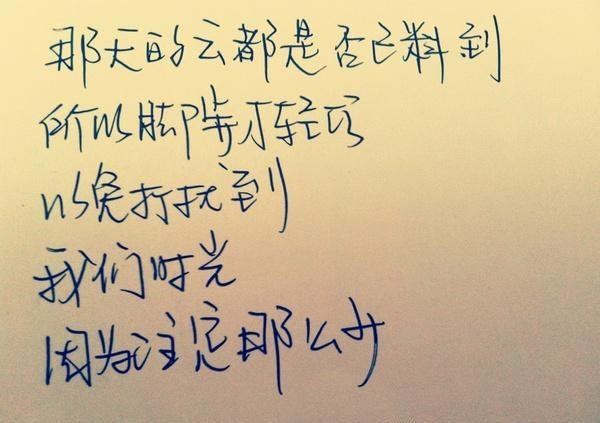 那天的云都是否已料到
所以脚步才轻巧
以免打扰到
我们时光
因为注定那么少